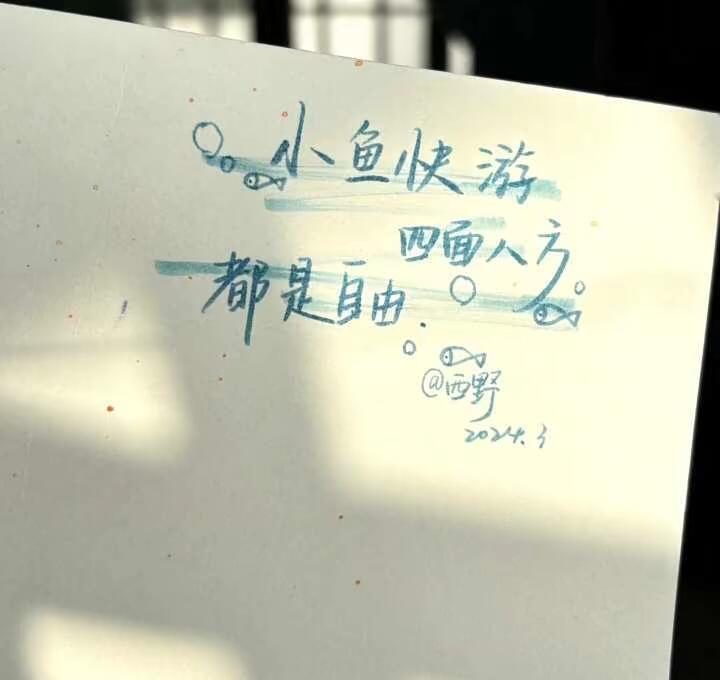 小鱼快游
四面八方
都是自由.
@西野
2024.3